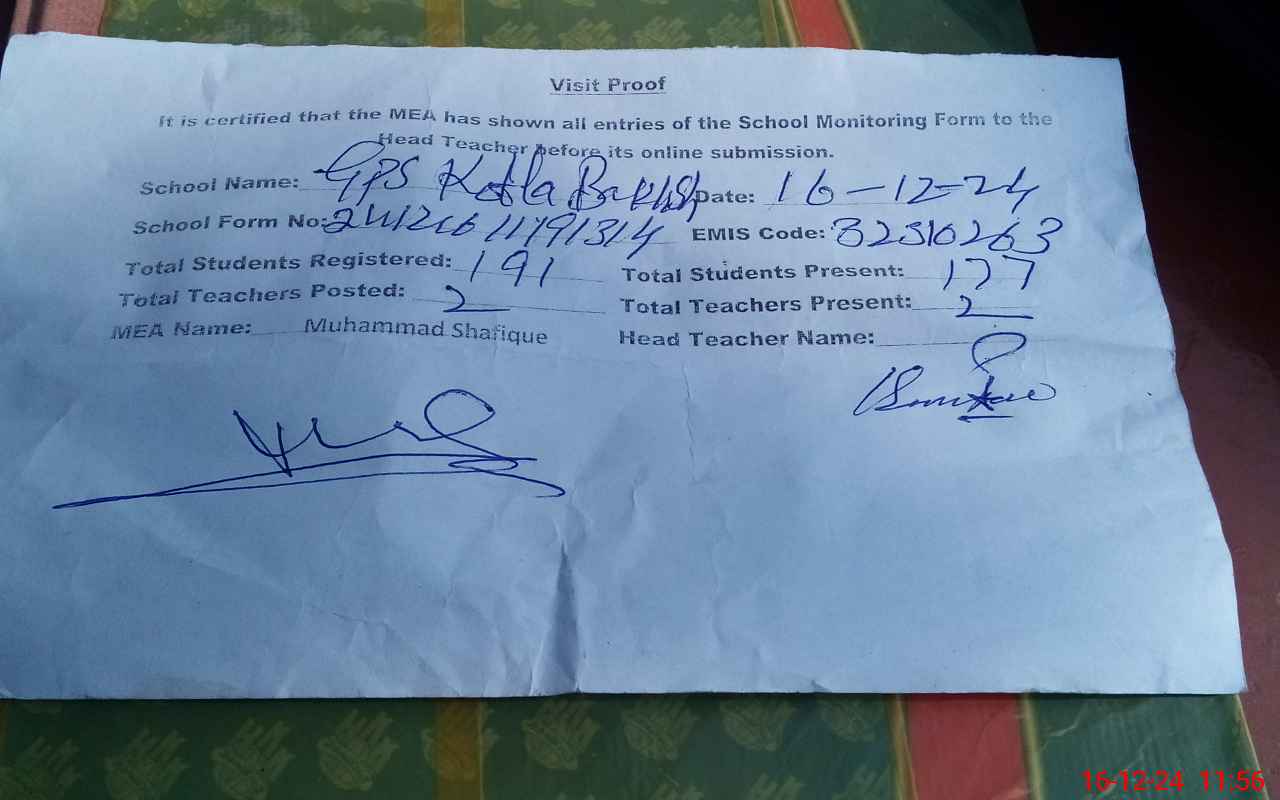 Visit Proof
It is certified that the MEA has shown all entries of the School Monitoring Form to the
Head Teacher before its online submission.
School Name: GPS Kotla Bakhsh Date: 16-12-24
School Form No: 241216 11791314 EMIS Code: 32310263
Total Students Registered: 191 Total Students Present: 177
Total Teachers Posted: 2 Total Teachers Present: 2
MEA Name: Muhammad Shafique Head Teacher Name:
16-12-24 11:56